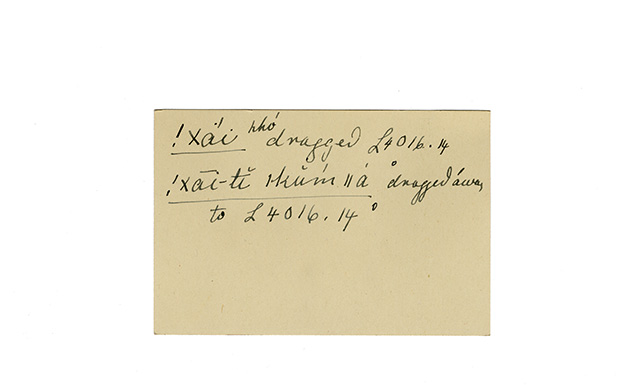 !xái hhó dragged L4016.14
!xāī-tĭ ıkŭḿ ǁá dragged away
to L4016.14